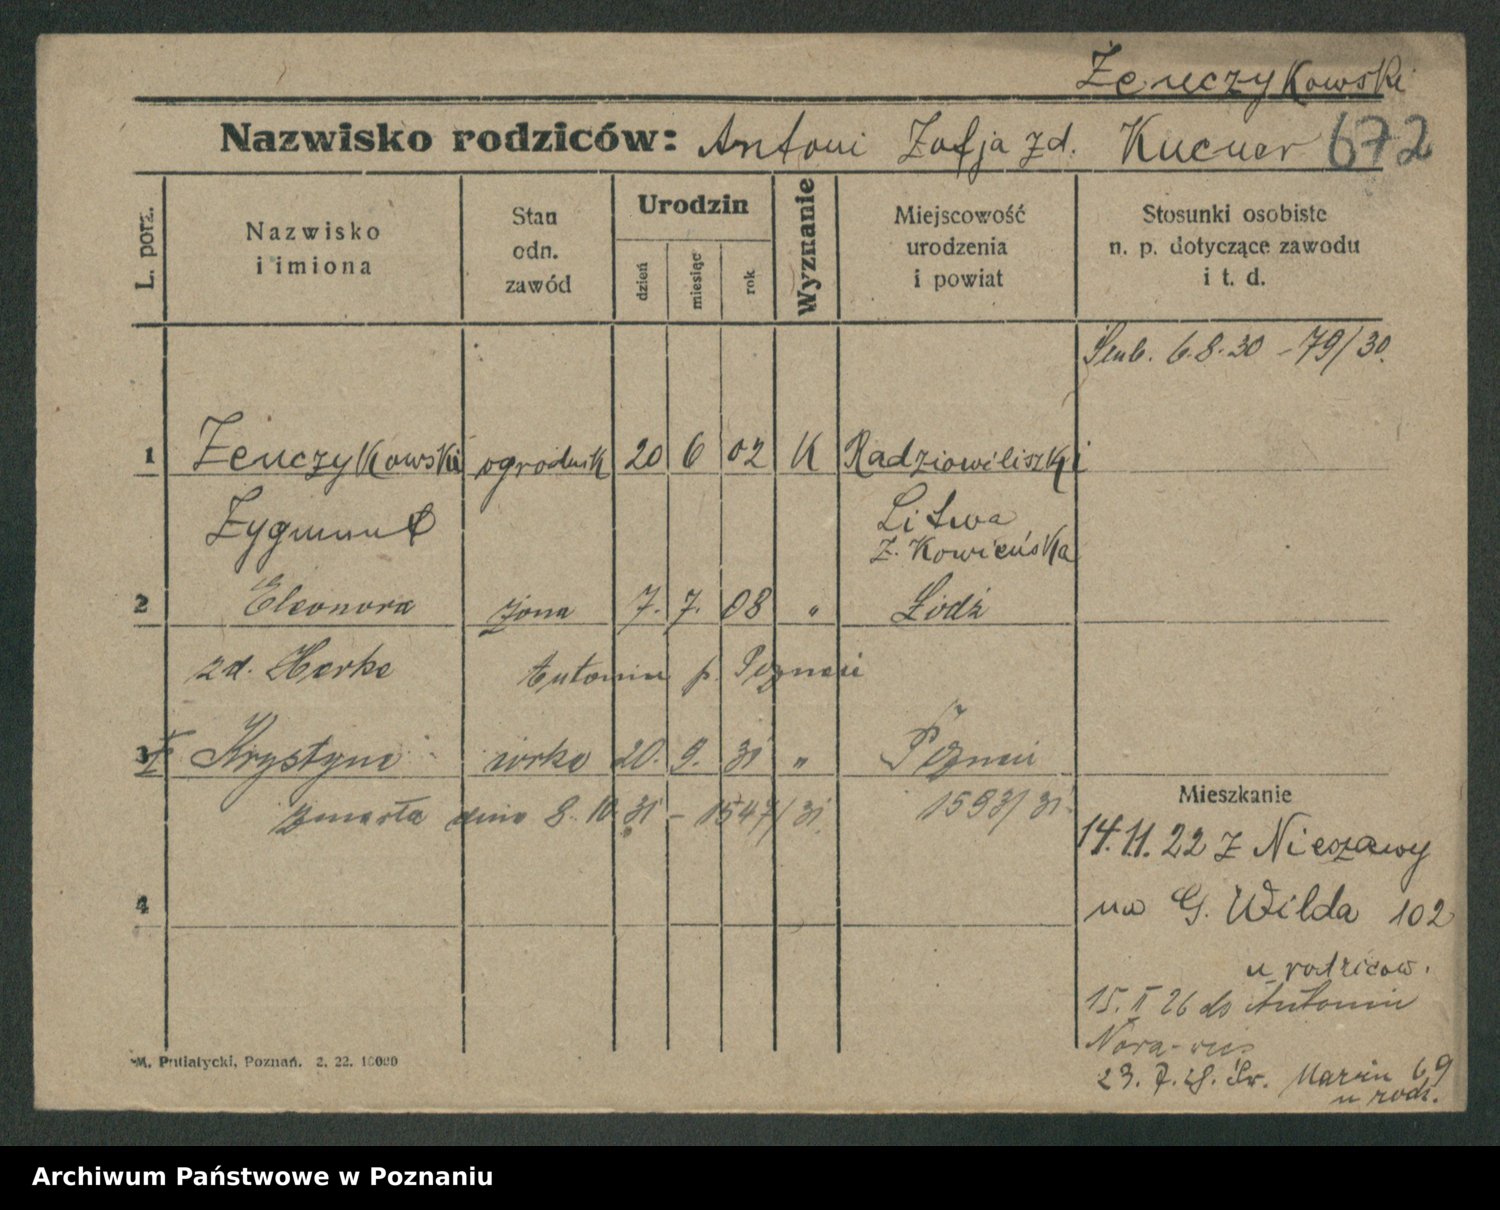 Żenczykowski
Nazwisko rodziców: Antoni Zofja zd. Kucner 672
L. porz.
Nazwisko
i imiona
Stan
odn.
zawód
Urodzin
dzień
miesiąc
rok
Wyznanie
Miejscowość
urodzenia
i powiat
Stosunki osobiste
n. p. dotyczące zawodu
i t. d.
6.8.30 - 79/30.
1 Żenczykowski ogrodnik 20 6 02 K Radziwiliszki
Zygmunt Litwa
z. Kowieńska
2 Eleonora żona 7. 7. 08 " Łódź
zd. Herke Antonin p. Poznań
3 Krystyna córka 20. 9. 31 " Poznań
zmarła dnia 8. 10. 31 - 1547/31. 1593/31.
4
Mieszkanie
14.11.22 z Nieszawy
na G. Wilda 102
u rodziców.
15. II 26 do Antonin
23. 7. 28. Św. Marcin 69
u rodz.
M. Putiatycki, Poznań. 2. 22. 10000
Archiwum Państwowe w Poznaniu